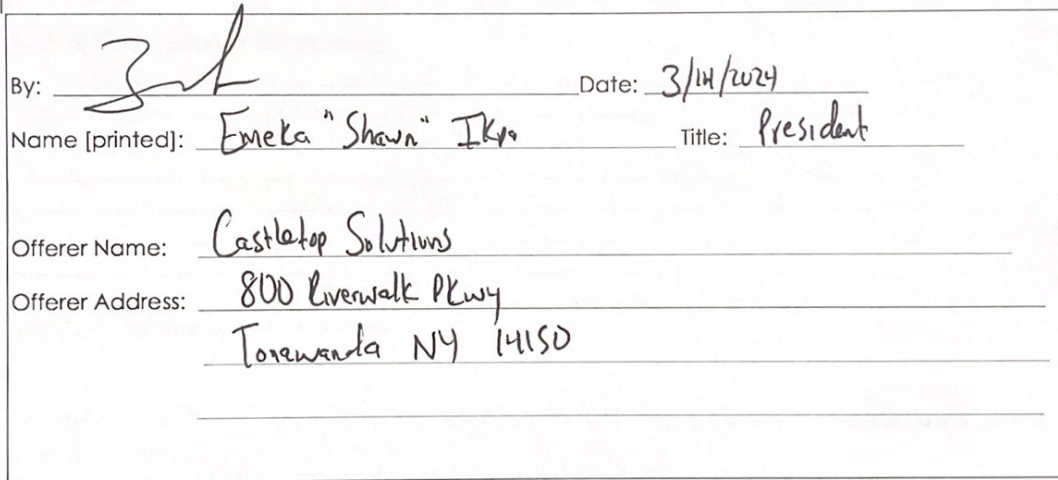 By: Date: 3/14/2024
Name [printed]: Emeka "Shawn" Ikpa Title: President
Offerer Name: Castletop Solutions
Offerer Address: 800 Riverwalk PKwy
Tonawanda NY 14150